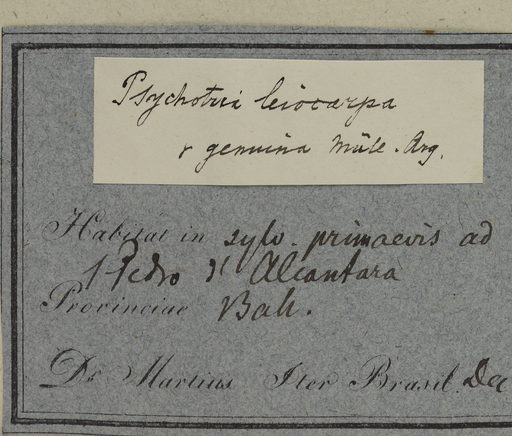 Psychotria leiocarpa
γ genuina Müll. Arg.
Habitat in sylv. primaevis ad
S. Pedro d'Alcantara
Provinciae Bah.
Dr. Martius Iter Brasil. Dec